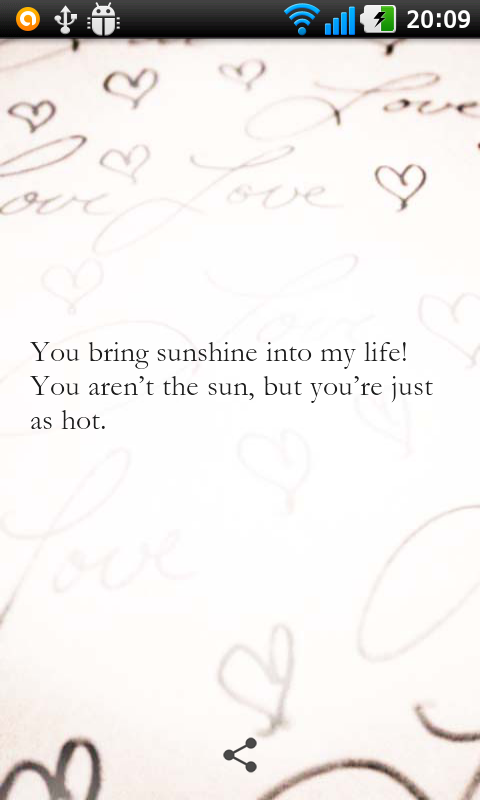 20:09
Love
ove
Love
Love
You bring sunshine into my life!
You aren't the sun, but you're just
as hot.
Love